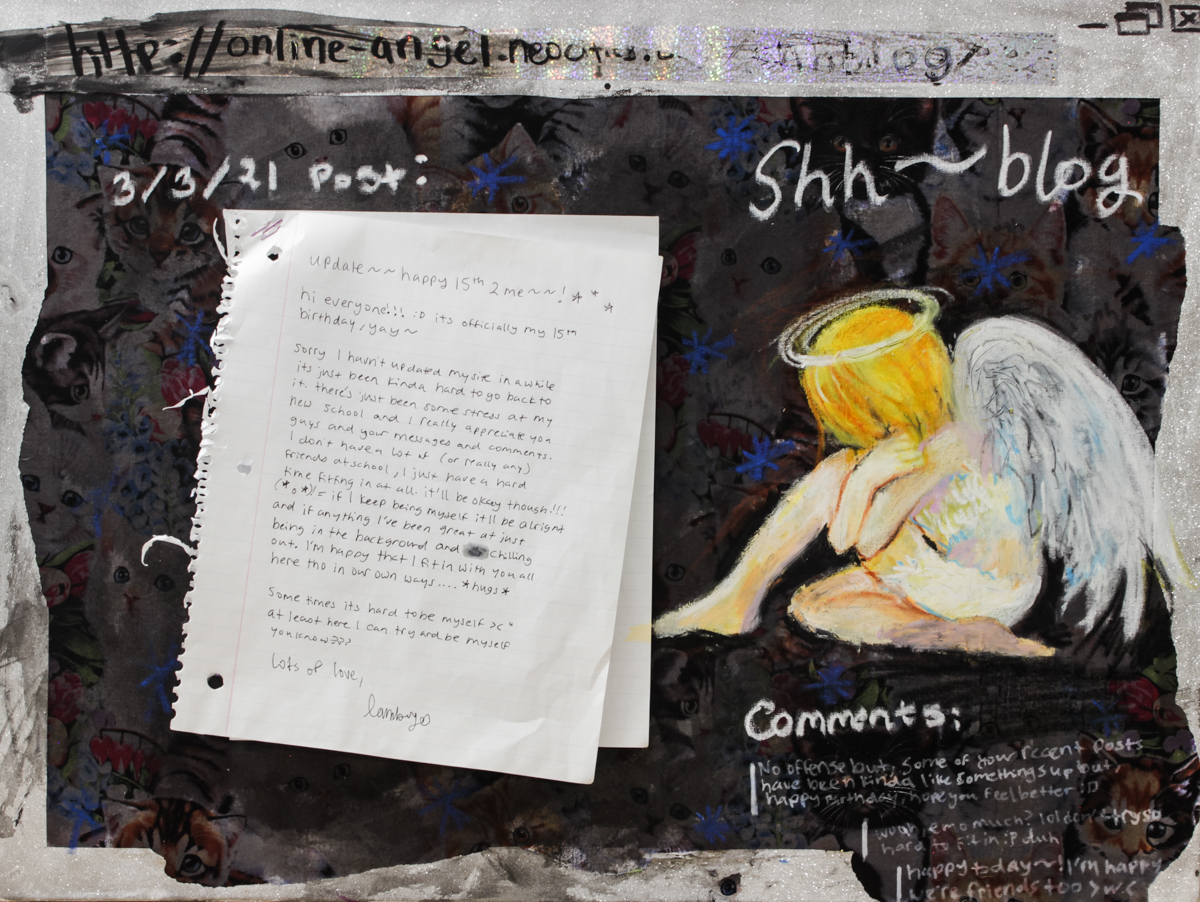 http://online-angel.neocities. blog/
3/3/21 Post:
Shh~blog
update~~happy 15th 2 me~~!
hi everyone!!! :D its officially my 15th
birthday, yay~
Sorry I havn't updated my site in a while
its just been kinda hard to go back to
it. there's just been some stress at my
new school and I really appreciate you
guys and your messages and comments.
I don't have a lot of (or really any)
friends at school, I just have a hard
time fitting in at all. it'll be okay though!!!
(*o*)!= if I keep being myself it'll be alright
and if anything I've been great at just
being in the background and chilling
out. I'm happy that I fit in with you all
here tho in our own ways.... *hugs*
Some times its hard to be myself >< "
at least here I can try and be myself
you know???
Lots of love,
Comments:
No offense but, some of your recent posts
have been kinda like somethings up but,
happy birthday, hope you feel better :D
emo much? lol don't try so
hard to fit in :P duh
happy today~! I'm happy
we're friends too >w<